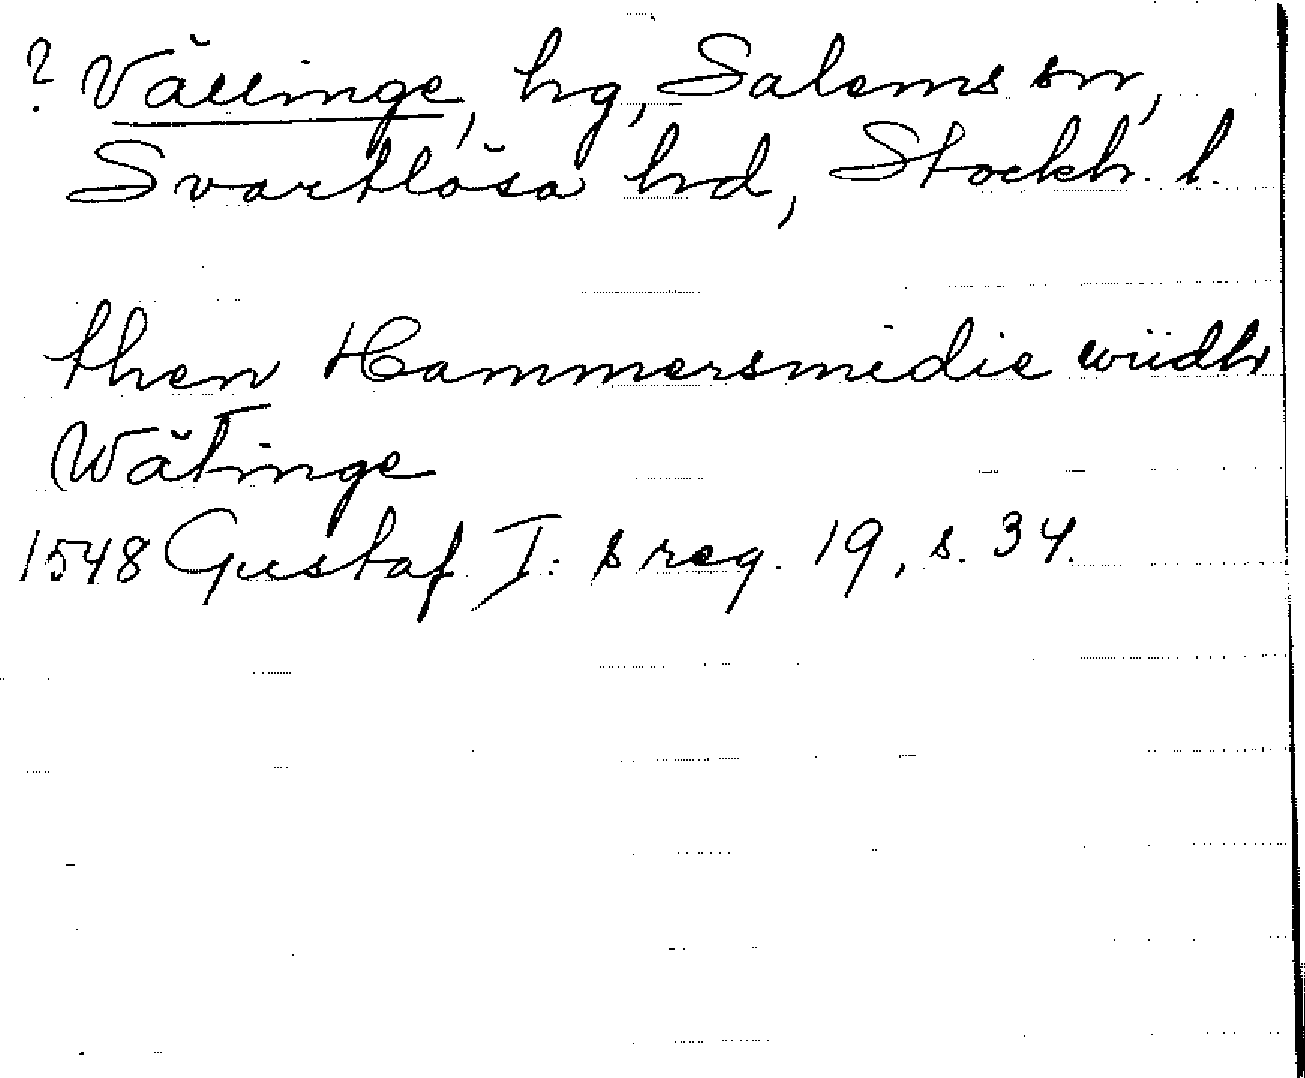 ? Vällinge, hg, Salems sn,
Svartlösa hd, Stockh. l.
then Hammersmidie wiidh
Wätinge
1548 Gustaf I:s reg. 19, s. 34.